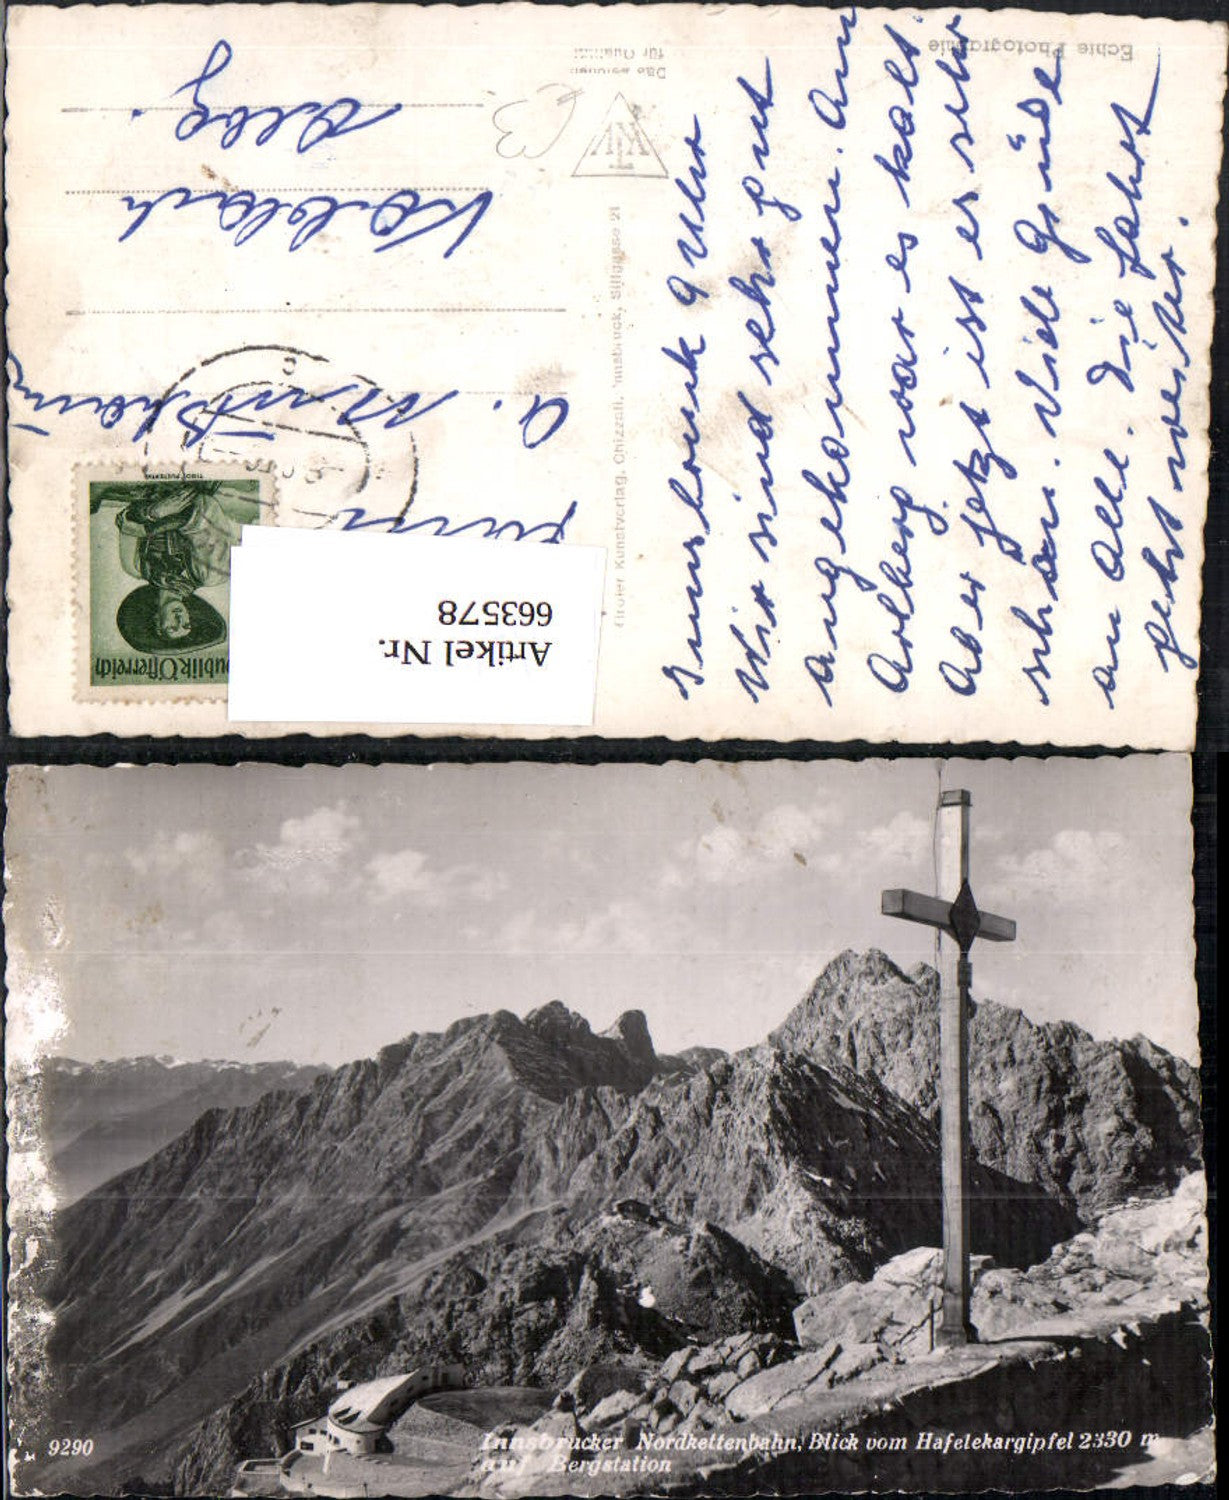 Echte Photographie
für Qualität
Innsbruck 9 Uhr
Wir sind sehr gut
angekommen. Am
Arlberg war es kalt.
Aber jetzt ist es sehr
schön. Viele Grüße
an alle. Die Fahrt
geht weiter.
Tiroler Kunstverlag, Chizzali, Innsbruck, Sillgasse 21
a.
Republik Österreich
Artikel Nr.
663578
9290
Innsbrucker Nordkettenbahn, Blick vom Hafelekargipfel 2330 m
auf Bergstation